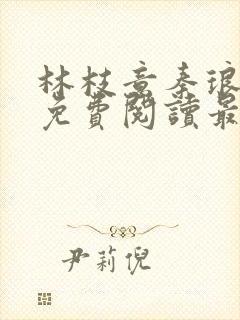 林枝意秦琅
免費閱讀最
尹莉倪